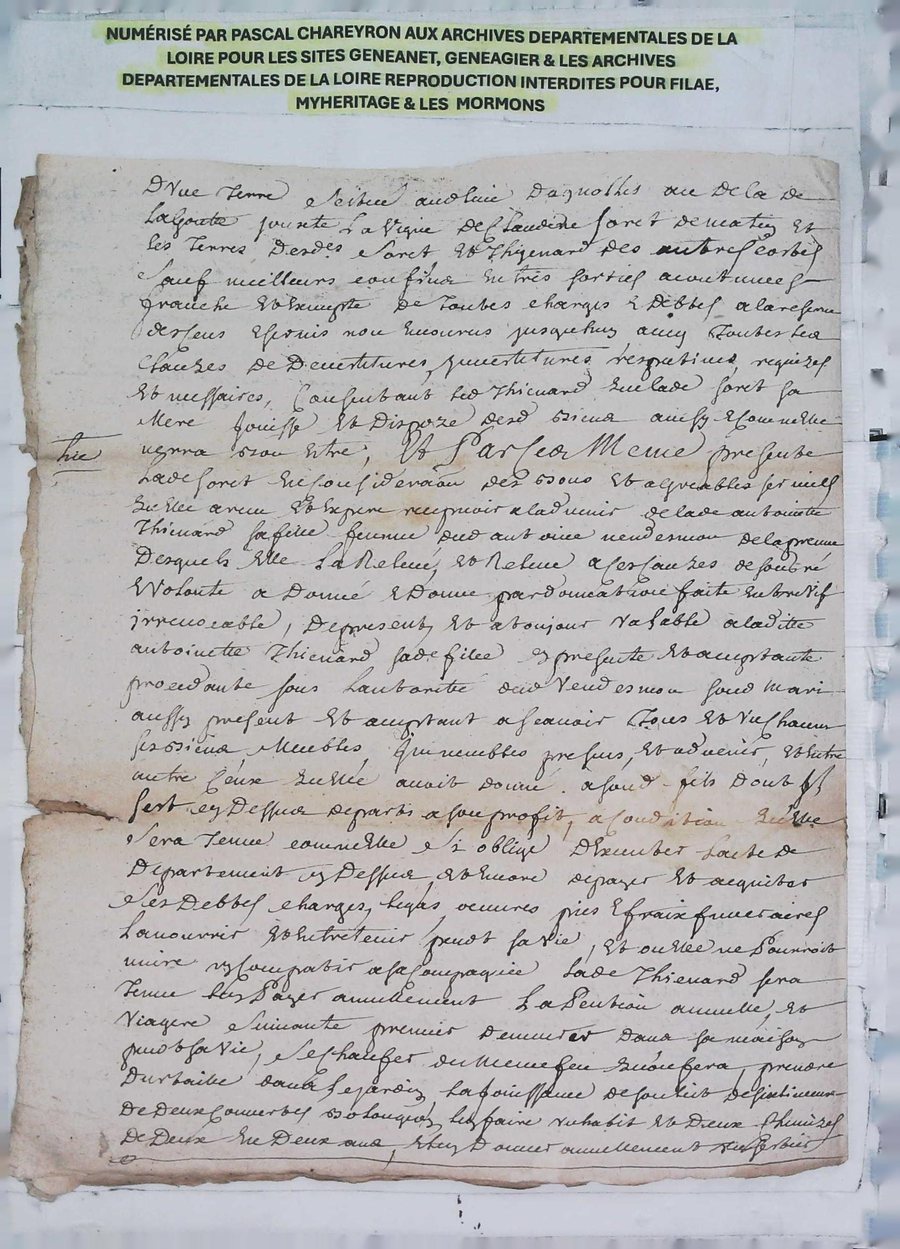 NUMÉRISÉ PAR PASCAL CHAREYRON AUX ARCHIVES DEPARTEMENTALES DE LA
LOIRE POUR LES SITES GENEANET, GENEAGIER & LES ARCHIVES
DEPARTEMENTALES DE LA LOIRE REPRODUCTION INTERDITES POUR FILAE,
MYHERITAGE & LES MORMONS
D'vne Terre scitue audlieu au Dela de
La goutte jouxte La vigne de Claudine foret et
les Terres Desdes foret et Thienard des autres costés
sauf meilleurs confins entrés sorties acoutumées
franche et exempte de Toutes charges & Debbes a la reserve
jusquehuy avec Toutes les
Clauzes de Devestitures, investitures respectives, requizes
et nessaires, Consentant led Thienard que lade foret sa
Mere jouisse et Dispoze desd biens
verra bon estre, Et Par Les Meme presente
Lade foret en consideraon des bons et agreables services
quelle a receu et espere recepvoir a ladvenir de lade antoinette
Thienard sa fille femme dud antoine vendesmon de la preuve
Desquels Elle La Relevé, et Releve a ces cauzes de son gré
& volonté a Donné & Donne par donnation faite entre vif
irrevocable, De present et a toujour valable a laditte
antoinette Thienard sade fille cy presente et acceptante
procedante sous Lautorité dud Vendesmon sond mari
aussy present et acceptant a scavoir Tous et vn chacun
ses biens Meubles, immeubles presens, et advenir, et entre
autre Ceux quelle avoit donné a sond fils Dont il
sest cy Dessus departi a son profit, a Condition quelle
sera Tenue comme elle si oblige D'Executer Lacte de
Departement cy Dessus, et encore de payer et acquiter
ses Debbes charges, legas, oeuvres pies & fraix funeraires
La nourrir et entretenir pendt sa vie, et ou elle ne Pourroit
vivre ny Compatir a sa Compagnie Lade Thienard sera
Tenue luy Payer annuellement La Pention annuelle, et
Viagere Suivante premier Demurer dans sa maison
pendt sa vie, se chaufer du Meme feu prendre
dans le jardin La jouissance de son lit
De Deux Couvertes luy faire vn habit et Deux Chemizes
De Deux en Deux ans, et luy Donner annuellement